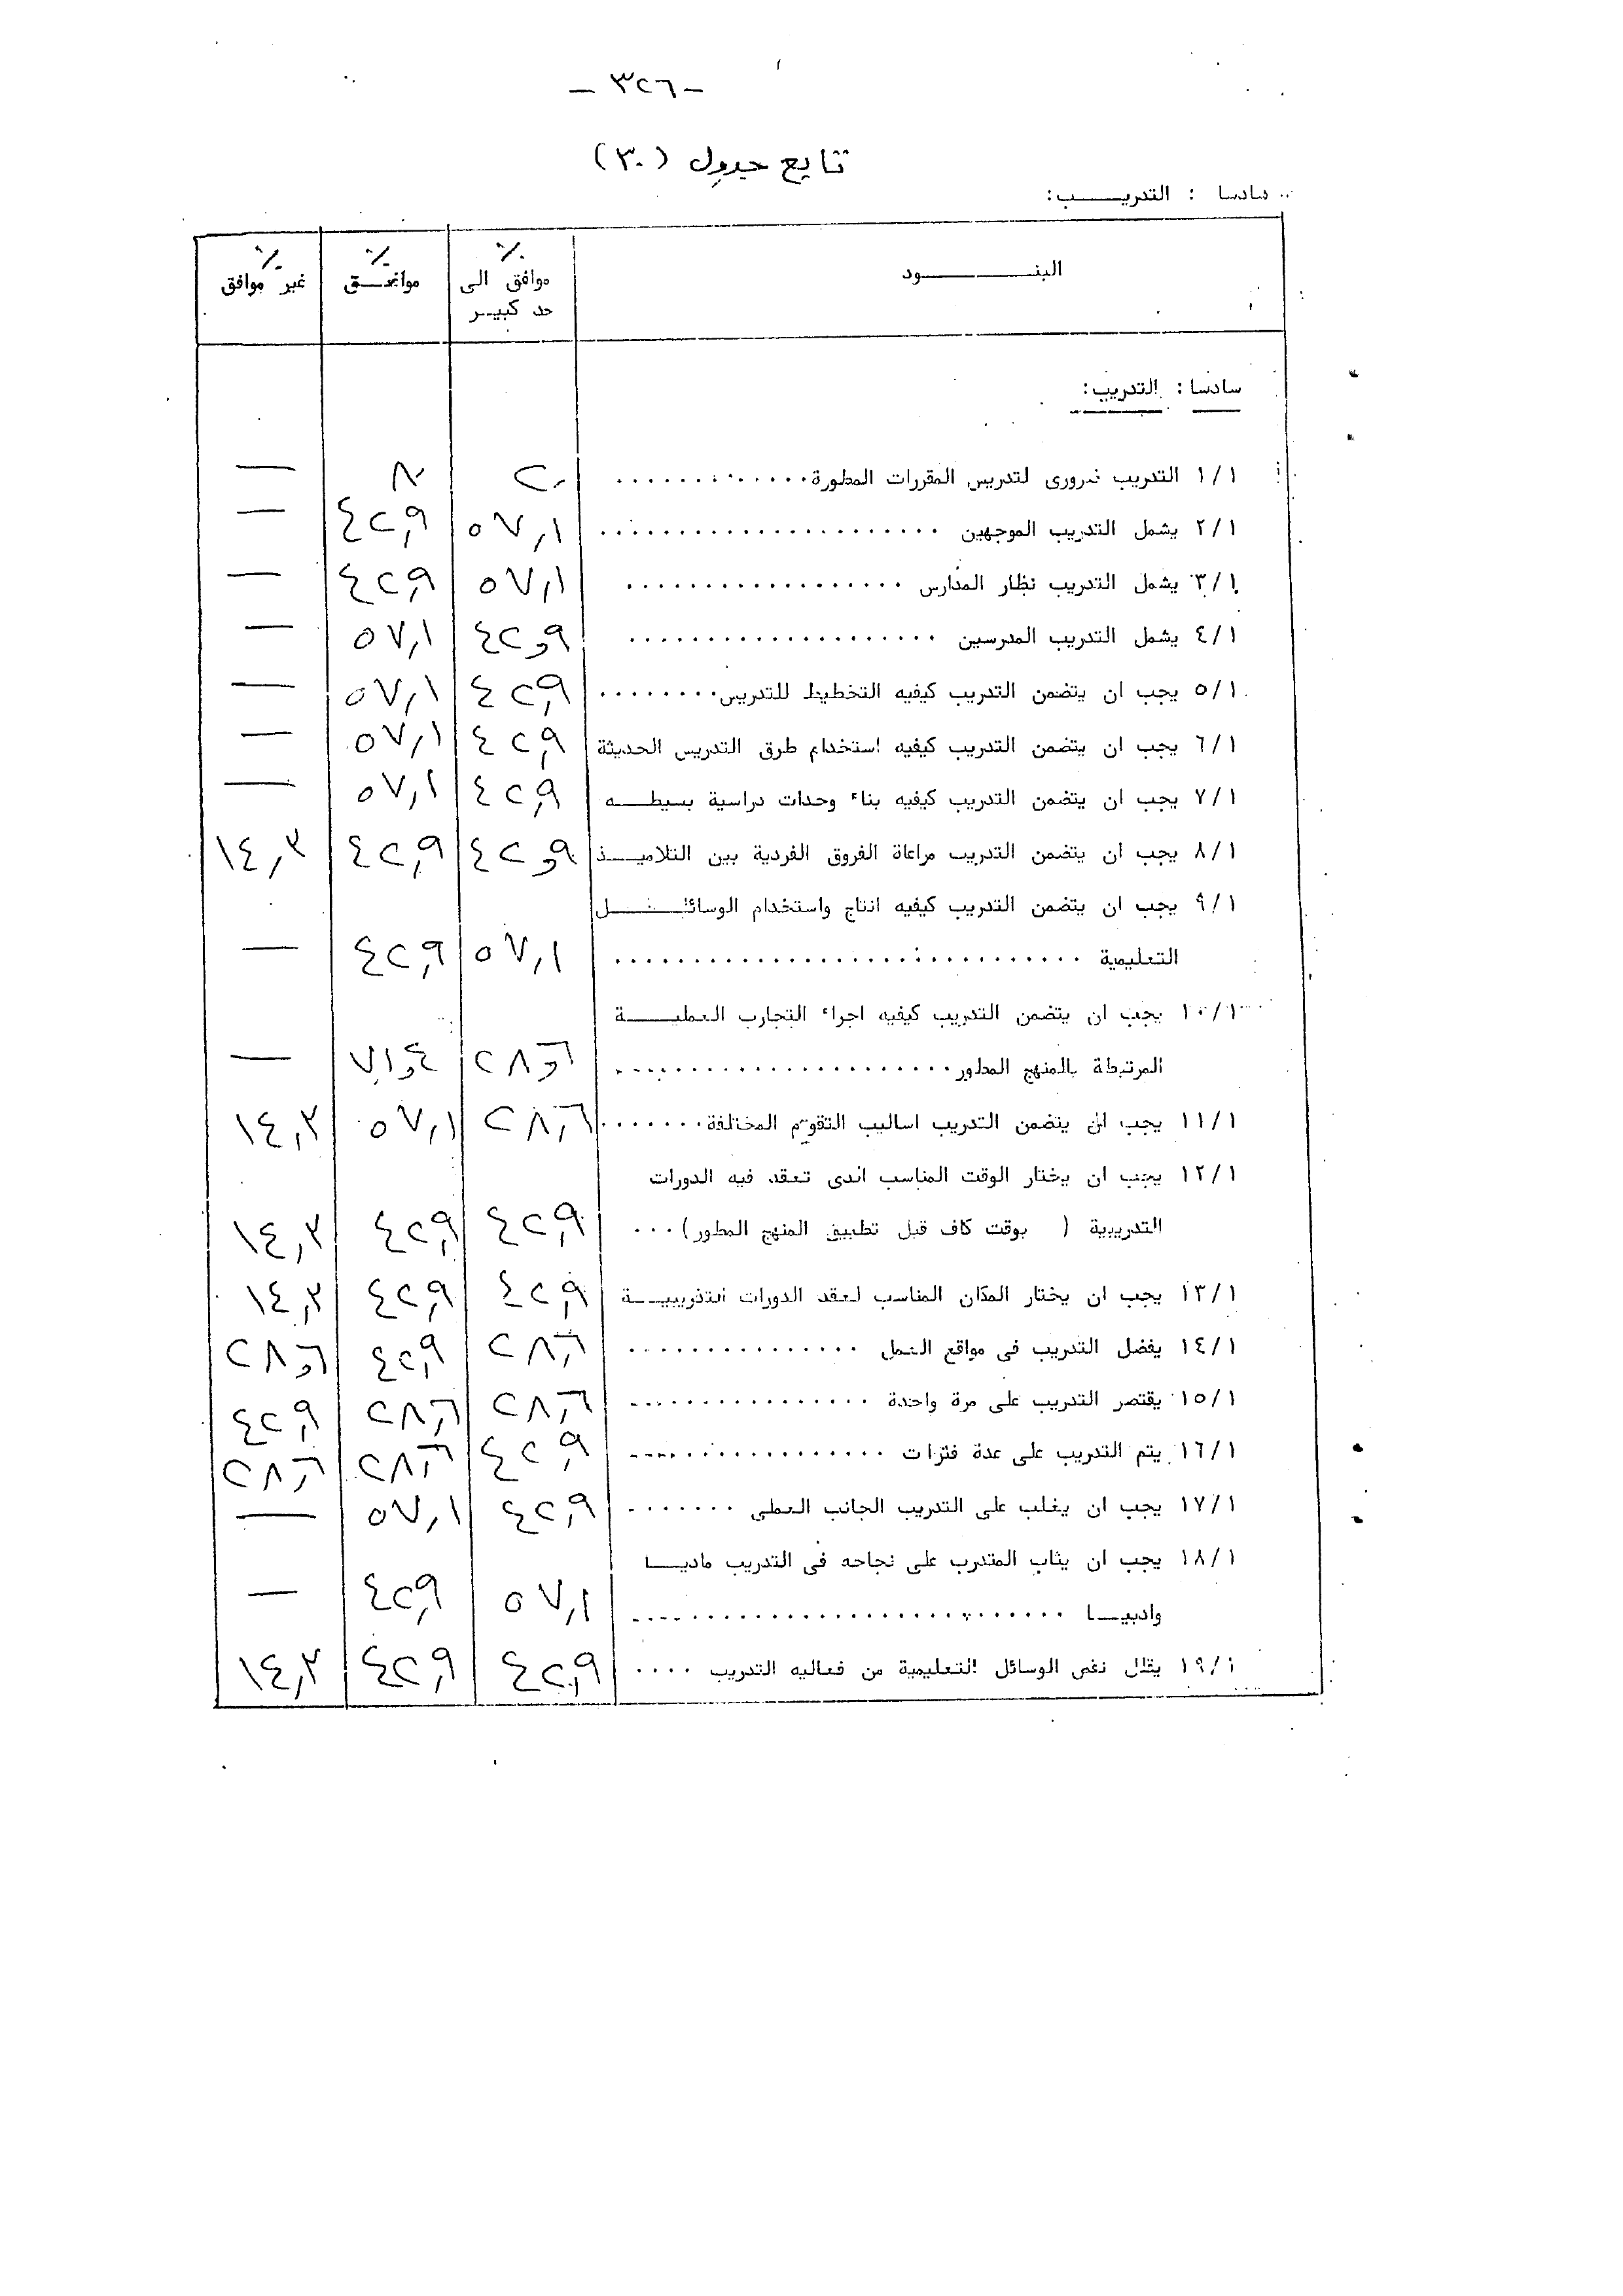 - ٣٢٦ -
تابع جدول (٣٠)
سادسا : التدريـــب:
البنـــــــود | ٪ موافق الى | ٪ موافـــق | ٪ غير موافق
حد كبيـر
سادسا : التدريب:
١/١ التدريب ضرورى لتدريس المقررات المطورة............ | ٢٠ | ٨٠ | —
٢/١ يشمل التدريب الموجهين ...................... | ٥٧,١ | ٤٢,٩ | —
٣/١ يشمل التدريب نظار المدارس .................. | ٥٧,١ | ٤٢,٩ | —
٤/١ يشمل التدريب المدرسين .................... | ٤٢,٩ | ٥٧,١ | —
٥/١ يجب ان يتضمن التدريب كيفيه التخطيط للتدريس........ | ٤٢,٩ | ٥٧,١ | —
٦/١ يجب ان يتضمن التدريب كيفيه استخدام طرق التدريس الحديثة | ٤٢,٩ | ٥٧,١ | —
٧/١ يجب ان يتضمن التدريب كيفيه بناء وحدات دراسية بسيطـــه | ٤٢,٩ | ٥٧,١ | —
٨/١ يجب ان يتضمن التدريب مراعاة الفروق الفردية بين التلاميـــذ | ٤٢,٩ | ٤٢,٩ | ١٤,٣
٩/١ يجب ان يتضمن التدريب كيفيه انتاج واستخدام الوسائـــــل
التعليمية .............................. | ٥٧,١ | ٤٢,٩ | —
١٠/١ يجب ان يتضمن التدريب كيفيه اجراء التجارب العمليـــــة
المرتبطة بالمنهج المطور..................... | ٢٨,٦ | ٧١,٤ | —
١١/١ يجب ان يتضمن التدريب اساليب التقويم المختلفة........ | ٢٨,٦ | ٥٧,١ | ١٤,٣
١٢/١ يجب ان يختار الوقت المناسب الذى تعقد فيه الدورات
التدريبية ( بوقت كاف قبل تطبيق المنهج المطور)... | ٤٢,٩ | ٤٢,٩ | ١٤,٣
١٣/١ يجب ان يختار المكان المناسب لعقد الدورات التدريبيـــة | ٤٢,٩ | ٤٢,٩ | ١٤,٣
١٤/١ يفضل التدريب فى مواقع العمل ............... | ٢٨,٦ | ٤٢,٩ | ٢٨,٦
١٥/١ يقتصر التدريب على مرة واحدة ................ | ٢٨,٦ | ٢٨,٦ | ٤٢,٩
١٦/١ يتم التدريب على عدة فترات ................. | ٤٢,٩ | ٢٨,٦ | ٢٨,٦
١٧/١ يجب ان يغلب على التدريب الجانب العملى ........ | ٤٢,٩ | ٥٧,١ | —
١٨/١ يجب ان يثاب المتدرب على نجاحه فى التدريب ماديـــا
وادبيـــا ............................ | ٥٧,١ | ٤٢,٩ | —
١٩/١ يقلل نقص الوسائل التعليمية من فعاليه التدريب .... | ٤٢,٩ | ٤٢,٩ | ١٤,٣